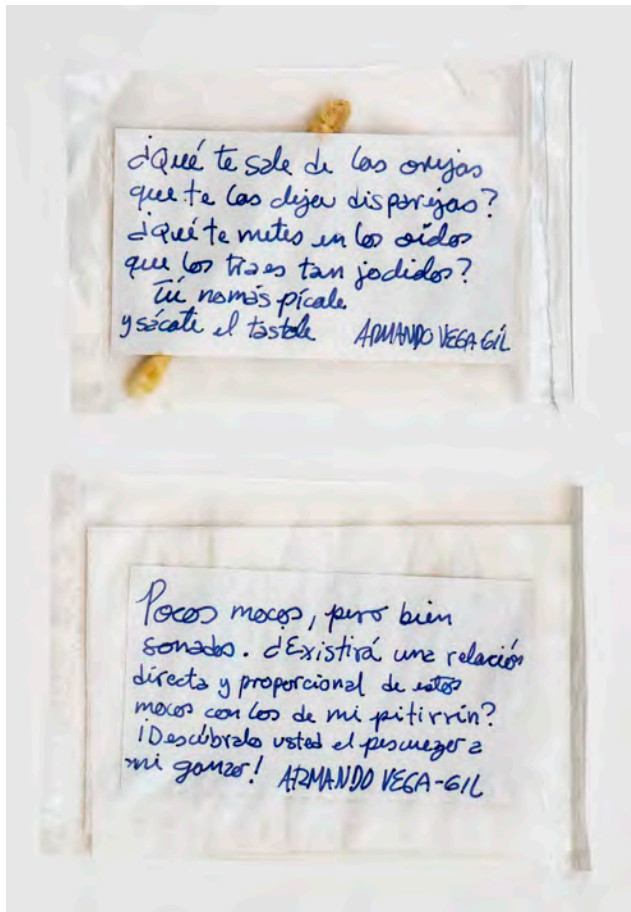 ¿Qué te sale de las orejas
que te las dejan disparejas?
¿Qué te metes en los oídos
que los traes tan jodidos?
Tú nomás pícale
y sácate el tastale
ARMANDO VEGA GIL
Pocos mocos, pero bien
sonados. ¿Existirá una relación
directa y proporcional de estos
mocos con los de mi pitirrín?
¡Descúbralo usted el pescuezo a
mi ganzo! ARMANDO VEGA-GIL